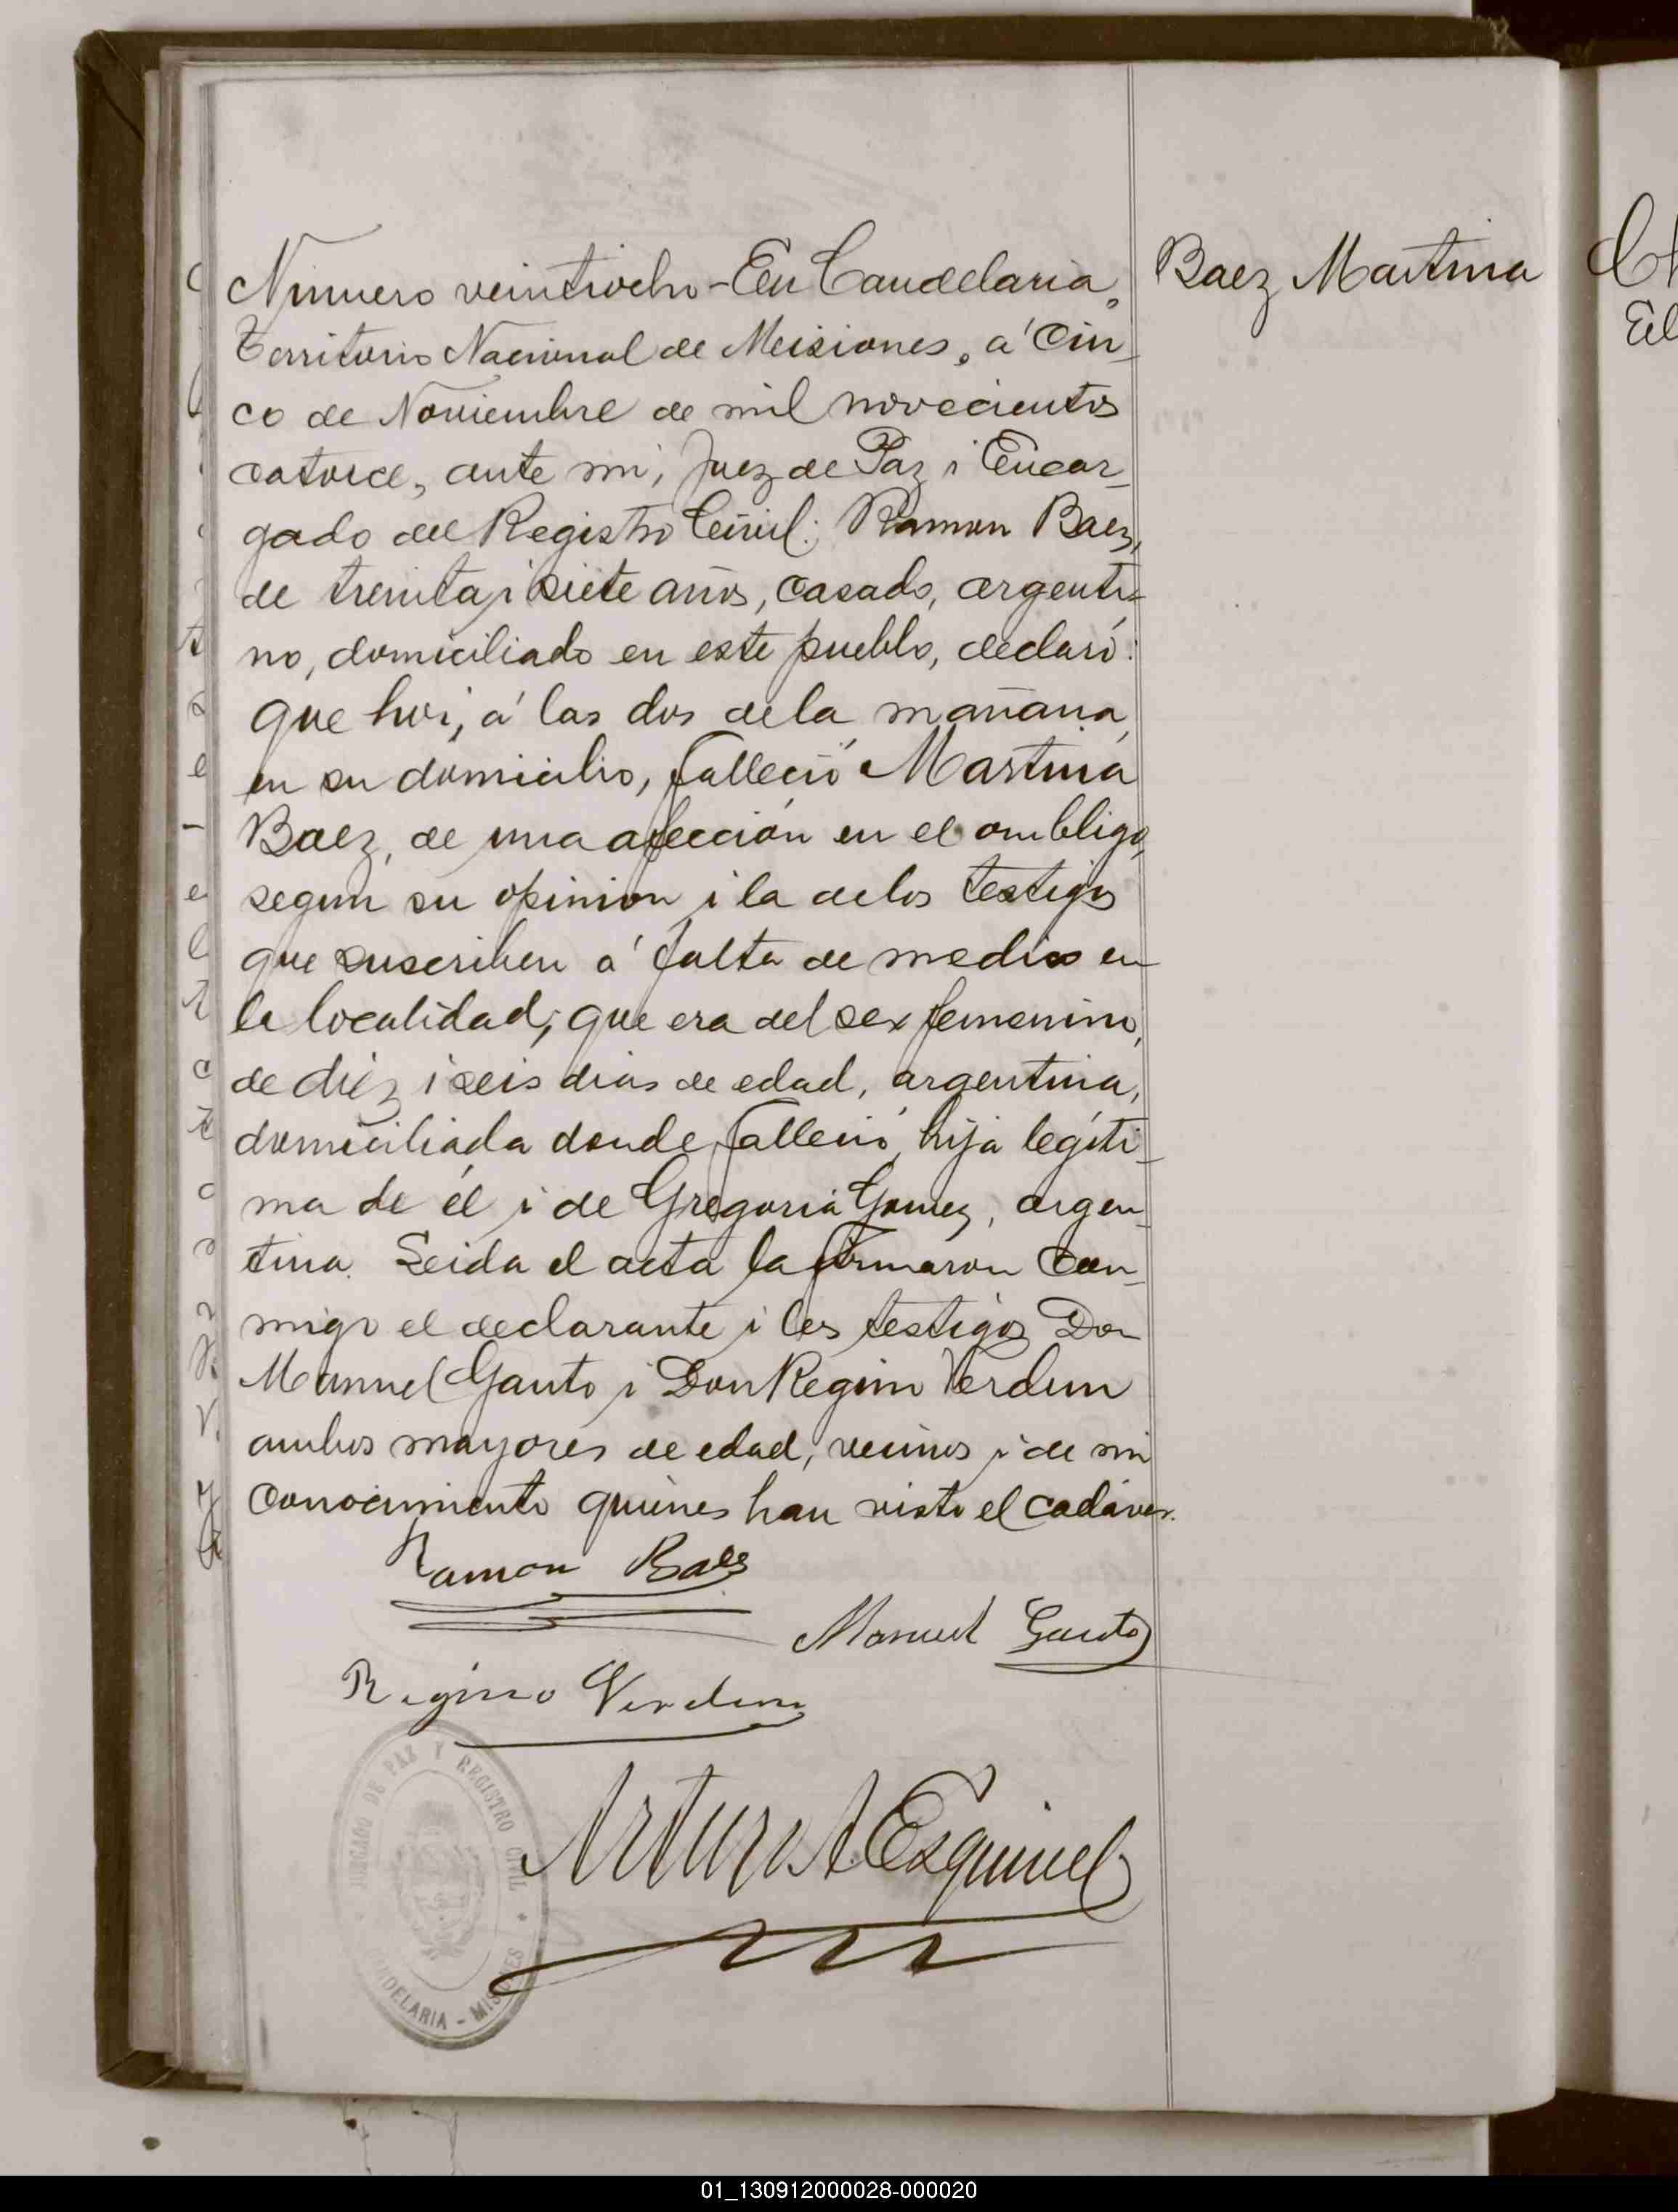 Baez Martina
Número veintiocho - En Candelaria,
Territorio Nacional de Misiones, á cin-
co de Noviembre de mil novecientos
catorce, ante mi, Juez de Paz i Encar-
gado del Registro Civil: Ramon Baez,
de treinta i siete años, casado, argenti-
no, domiciliado en este pueblo, declaró:
que hoi, á las dos de la mañana,
en su domicilio, falleció Martina
Baez, de una afección en el ombligo,
segun su opinion i la de los testigos
que suscriben á falta de medico en
la localidad; que era del sex femenino,
de diez i seis dias de edad, argentina,
domiciliada donde falleció, hija legíti-
ma de él i de Gregoria Gomez, argen-
tina. Leida el acta la firmaron con-
migo el declarante i los testigos Don
Manuel Gauto i Don Regino Verdun
ambos mayores de edad, vecinos i de mi
conocimiento quiénes han visto el cadáver.
Ramon Baez
Manuel Gauto
Regino Verdun
Arturo A Esquivel
JUZGADO DE PAZ Y REGISTRO CIVIL
CANDELARIA - MISIONES
01_130912000028-000020